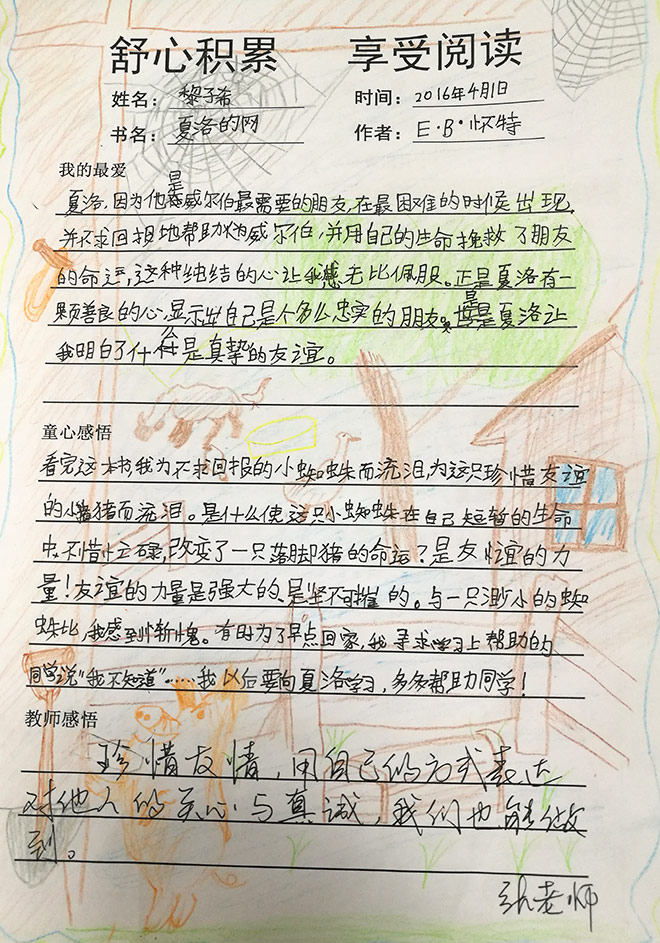 舒心积累 享受阅读
姓名： 黎子希 时间： 2016年4月1日
书名： 夏洛的网 作者： E·B·怀特
我的最爱
夏洛，因为他是威尔伯最需要的朋友，在最困难的时候出现，
并不求回报地帮助威尔伯，并用自己的生命挽救了朋友
的命运，这种纯结的心让我感无比佩服。正是夏洛有一
颗善良的心，显示出自己是个多么忠实的朋友。是夏洛让
我明白了什么是真挚的友谊。
童心感悟
看完这本书，我为不求回报的小蜘蛛而流泪，为这只珍惜友谊
的小猪而流泪。是什么使这只小蜘蛛在自己短暂的生命
不惜忙碌，改变了一只落脚猪的命运？是友谊的力
量！友谊的力量是强大的，是坚不可摧的。与一只渺小的蜘
蛛比，我感到惭愧。有时为了早点回家，我寻求学习上帮助的
同学说“我不知道”……我以后要向夏洛学习，多多帮助同学！
教师感悟
珍惜友情，用自己的方式表达
对他人的关心与真诚，我们也能做
到。
张老师